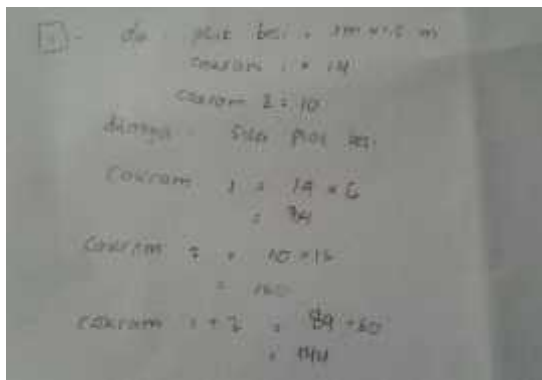 1. dik plat besi = 3m × 1,5 m
cakram 1 = 14
cakram 2 = 10
ditanya sisa plat besi
cakram 1 = 14 × 6
= 84
cakram 2 = 10 ×
=
cakram 1 + 2 = 84 + 60
= 144